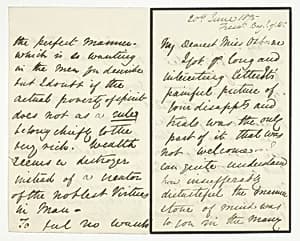 the perfect manner
which is so wanting
in the men you describe
but I doubt if the
actual poverty of spirit
does not as a rule
belong chiefly to the
very rich. Wealth
seems a destroyer
instead of a creator
of the noblest Virtues
in Man—
To feel no wants
20th June
My Dearest Miss
of long and
interesting letter &
painful picture of
your disappts and
trials was the only
part of it that was
not welcome— I
can quite understand
how insufferably
distasteful the
tone of mind was
to you in the many